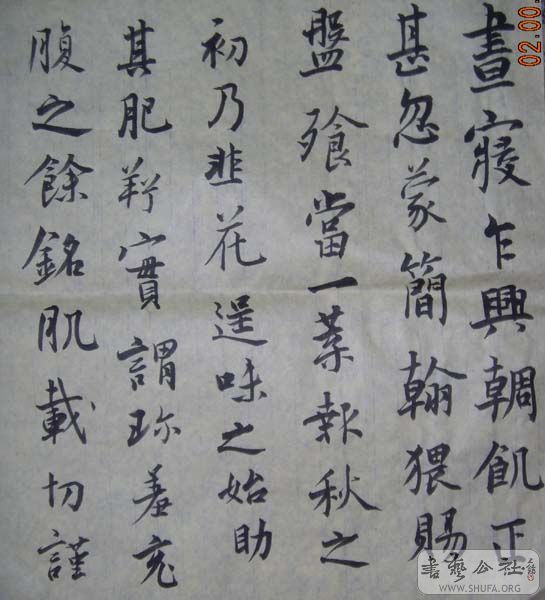 晝寢乍興輖飢正
甚忽蒙簡翰猥賜
盤飱當一葉報秋之
初乃韭花逞味之始助
其肥羜實謂珎羞充
腹之餘銘肌載切謹
02.00
書藝公社
WWW.SHUFA.ORG